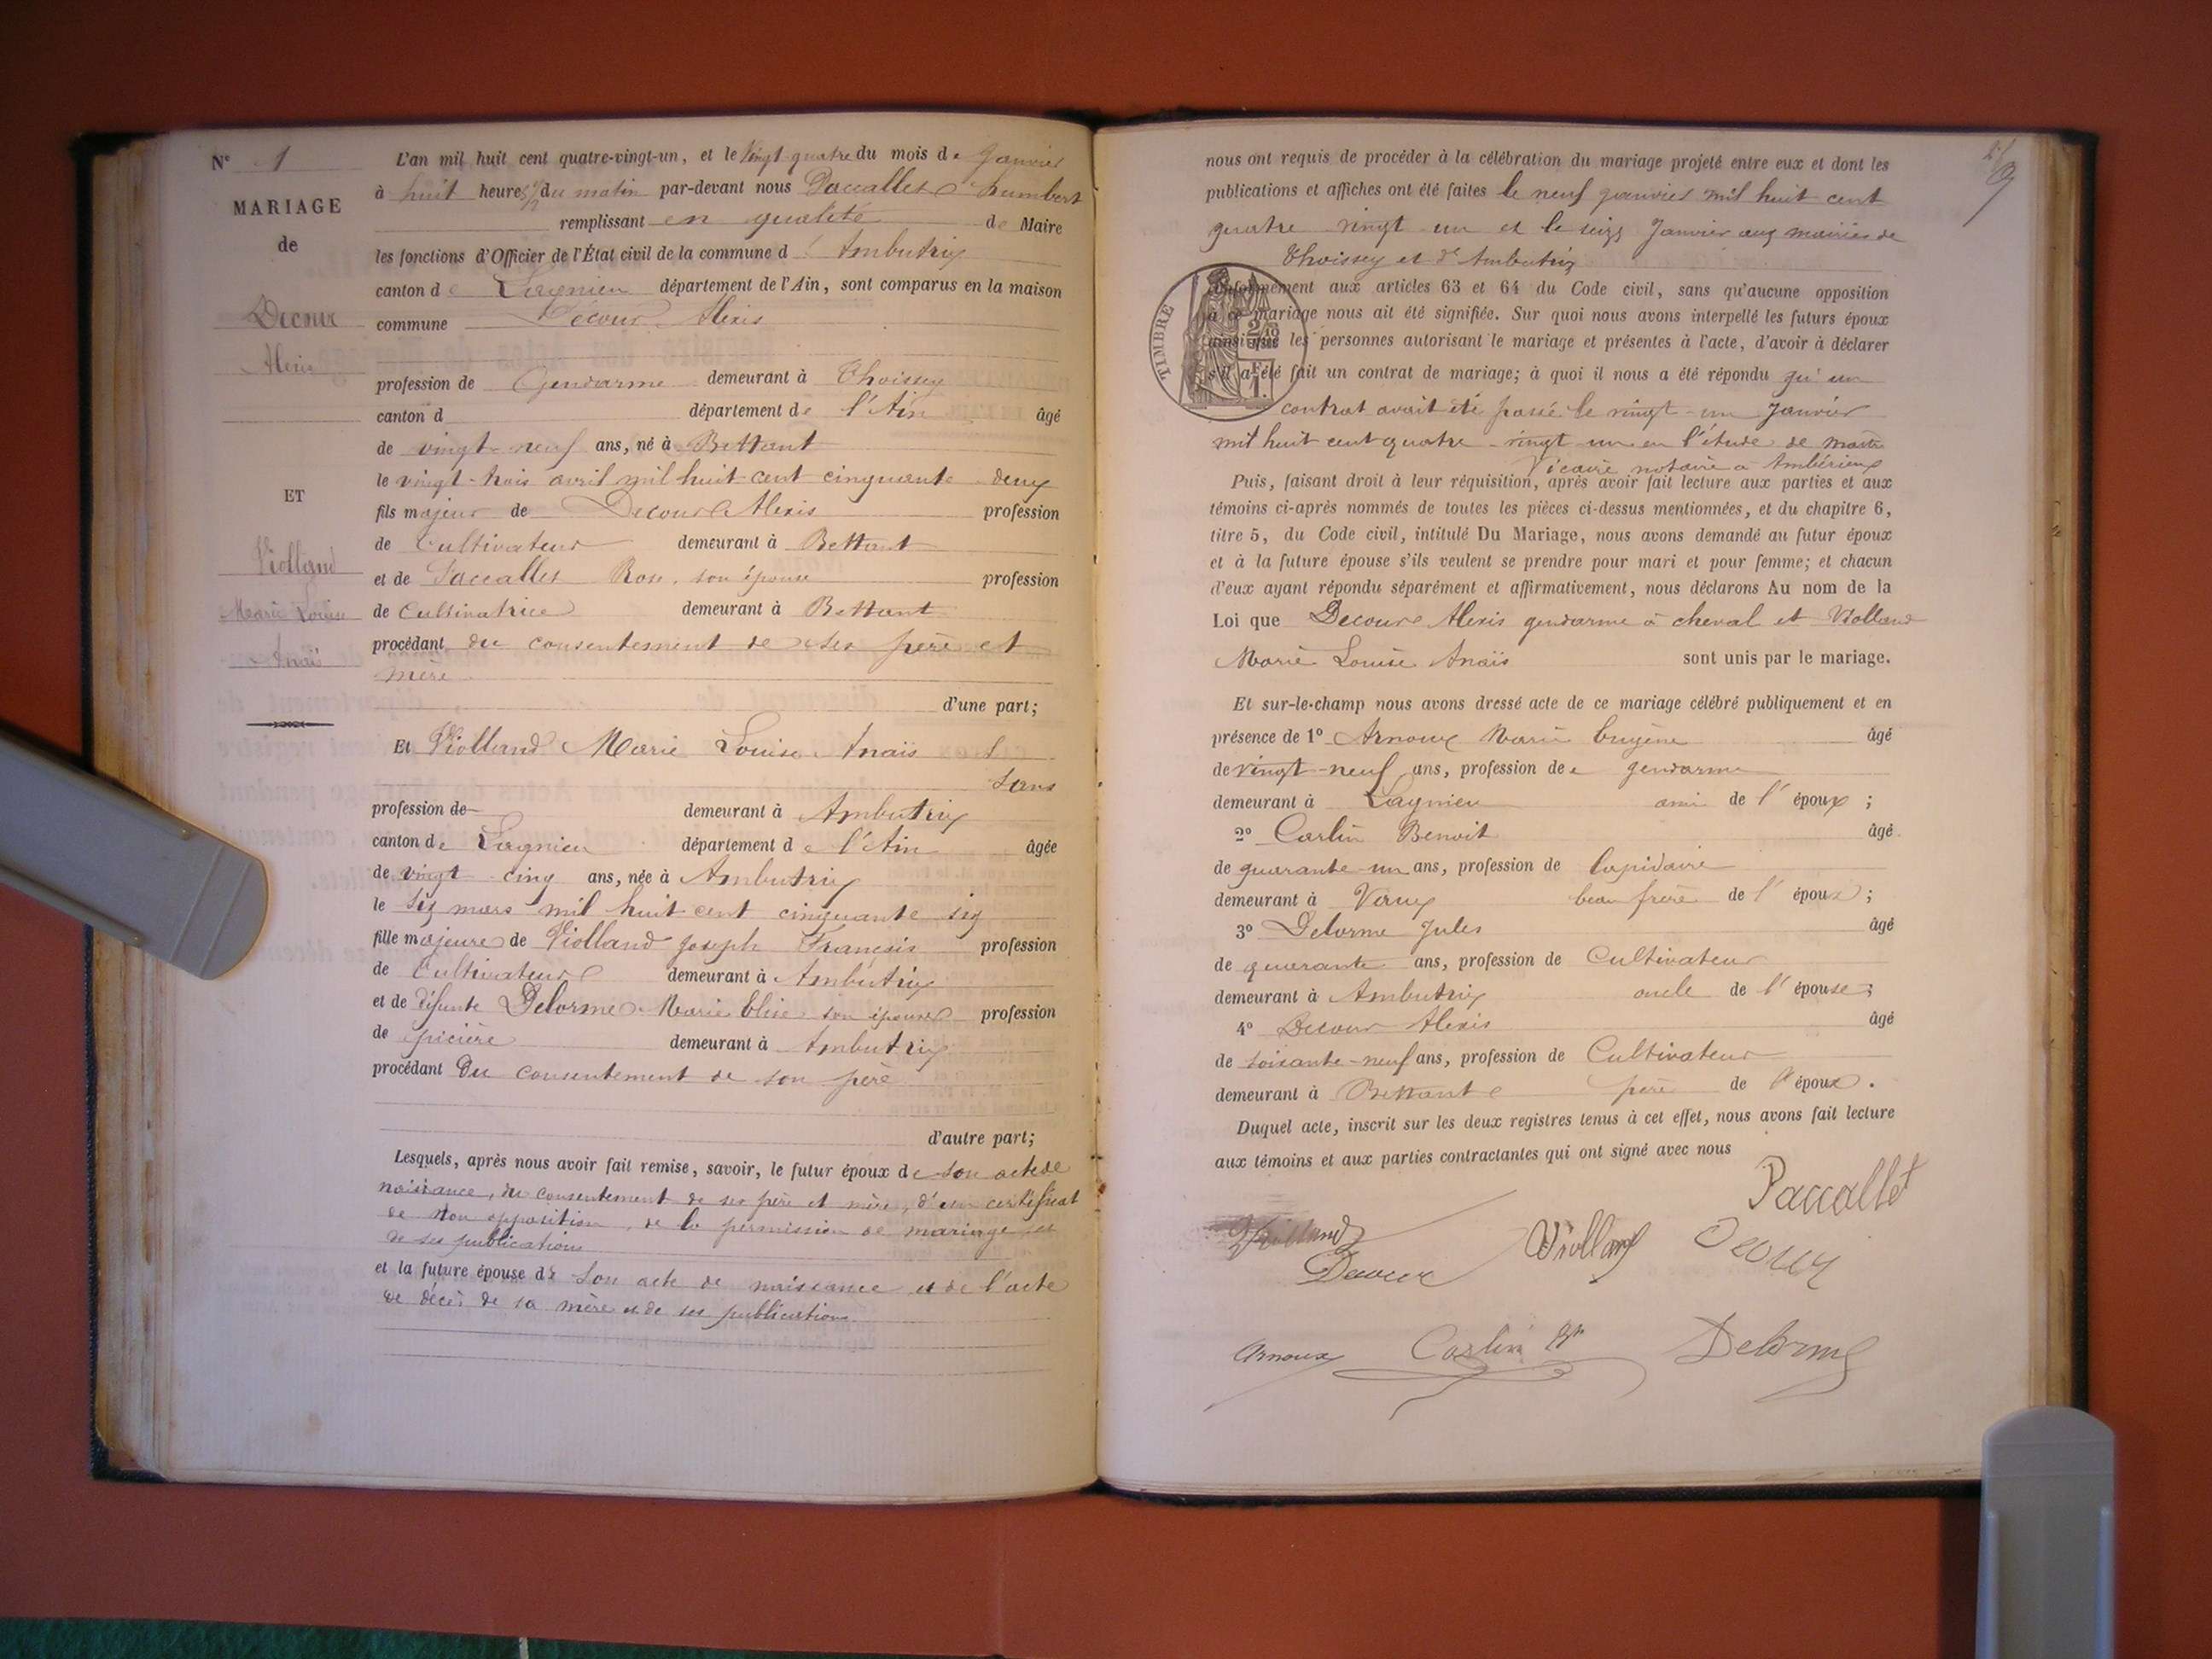 N° 1
MARIAGE
de
Decour
Alexis
ET
Violland
Marie Louise
Anaïs
L'an mil huit cent quatre-vingt-un, et le Vingt quatre du mois de Janvier
à huit heures 1/2 du matin par-devant nous Paccallet Humbert
remplissant en qualité de Maire
les fonctions d'Officier de l'État civil de la commune d' Ambutrix
canton de Lagnieu département de l'Ain, sont comparus en la maison
commune Decour Alexis
profession de Gendarme demeurant à Thoissey
canton d département de l'Ain âgé
de vingt-neuf ans, né à Bettant
le vingt-trois avril mil huit cent cinquante-deux
fils majeur de Decour Alexis profession
de Cultivateur demeurant à Bettant
et de Paccallet Rose, son épouse profession
de Cultivatrice demeurant à Bettant
procédant du consentement de ses père et
mère
d'une part;
Et Violland Marie Louise Anaïs
sans
profession de demeurant à Ambutrix
canton de Lagnieu département de l'Ain âgée
de vingt-cinq ans, née à Ambutrix
le six mars mil huit cent cinquante six
fille majeure de Violland Joseph François profession
de Cultivateur demeurant à Ambutrix
et de défunte Delorme Marie Elise son épouse profession
de épicière demeurant à Ambutrix
procédant Du consentement de son père
d'autre part;
Lesquels, après nous avoir fait remise, savoir, le futur époux de son acte de
naissance, du consentement de ses père et mère, d'un certificat
de non opposition, de la permission de mariage et
de ses publications
et la future épouse de son acte de naissance et de l'acte
de décès de sa mère et de ses publications
nous ont requis de procéder à la célébration du mariage projeté entre eux et dont les
publications et affiches ont été faites le neuf janvier mil huit cent
quatre vingt un et le seize Janvier aux mairies de
Thoissey et d'Ambutrix
conformément aux articles 63 et 64 du Code civil, sans qu'aucune opposition
à ce mariage nous ait été signifiée. Sur quoi nous avons interpellé les futurs époux
ainsi que les personnes autorisant le mariage et présentes à l'acte, d'avoir à déclarer
s'il a été fait un contrat de mariage; à quoi il nous a été répondu qu'un
contrat avait été passé le vingt-un Janvier
mil huit cent quatre-vingt un en l'étude de maître
Vicaire notaire à Ambérieux
TIMBRE
Puis, faisant droit à leur réquisition, après avoir fait lecture aux parties et aux
témoins ci-après nommés de toutes les pièces ci-dessus mentionnées, et du chapitre 6,
titre 5, du Code civil, intitulé Du Mariage, nous avons demandé au futur époux
et à la future épouse s'ils veulent se prendre pour mari et pour femme; et chacun
d'eux ayant répondu séparément et affirmativement, nous déclarons Au nom de la
Loi que Decour Alexis gendarme à cheval et Violland
Marie Louise Anaïs sont unis par le mariage.
Et sur-le-champ nous avons dressé acte de ce mariage célébré publiquement et en
présence de 1° Arnoux Marie Eugène âgé
de vingt-neuf ans, profession de gendarme
demeurant à Lagnieu ami de l'époux;
2° Carlin Benoit âgé
de quarante-un ans, profession de lapidaire
demeurant à Vaux beau frère de l'époux;
3° Delorme Jules âgé
de quarante ans, profession de Cultivateur
demeurant à Ambutrix oncle de l'épouse;
4° Decour Alexis âgé
de soixante-neuf ans, profession de Cultivateur
demeurant à Bettant père de l'époux.
Duquel acte, inscrit sur les deux registres tenus à cet effet, nous avons fait lecture
aux témoins et aux parties contractantes qui ont signé avec nous
Paccallet
Violland
Decour
Violland
Decour
Arnoux
Carlin
Delorme